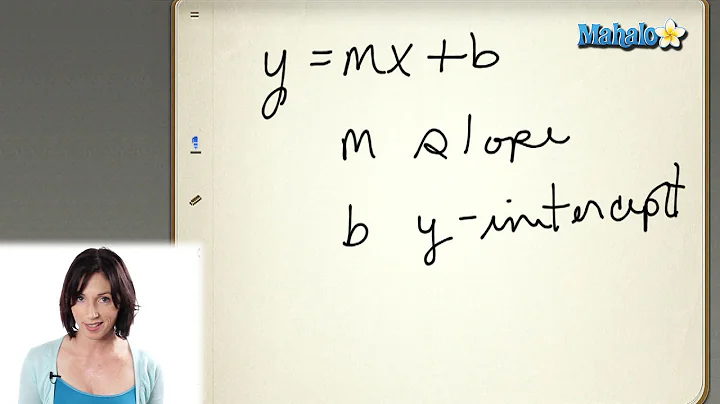 Mahalo
y = mx + b
m slope
b y-intercept